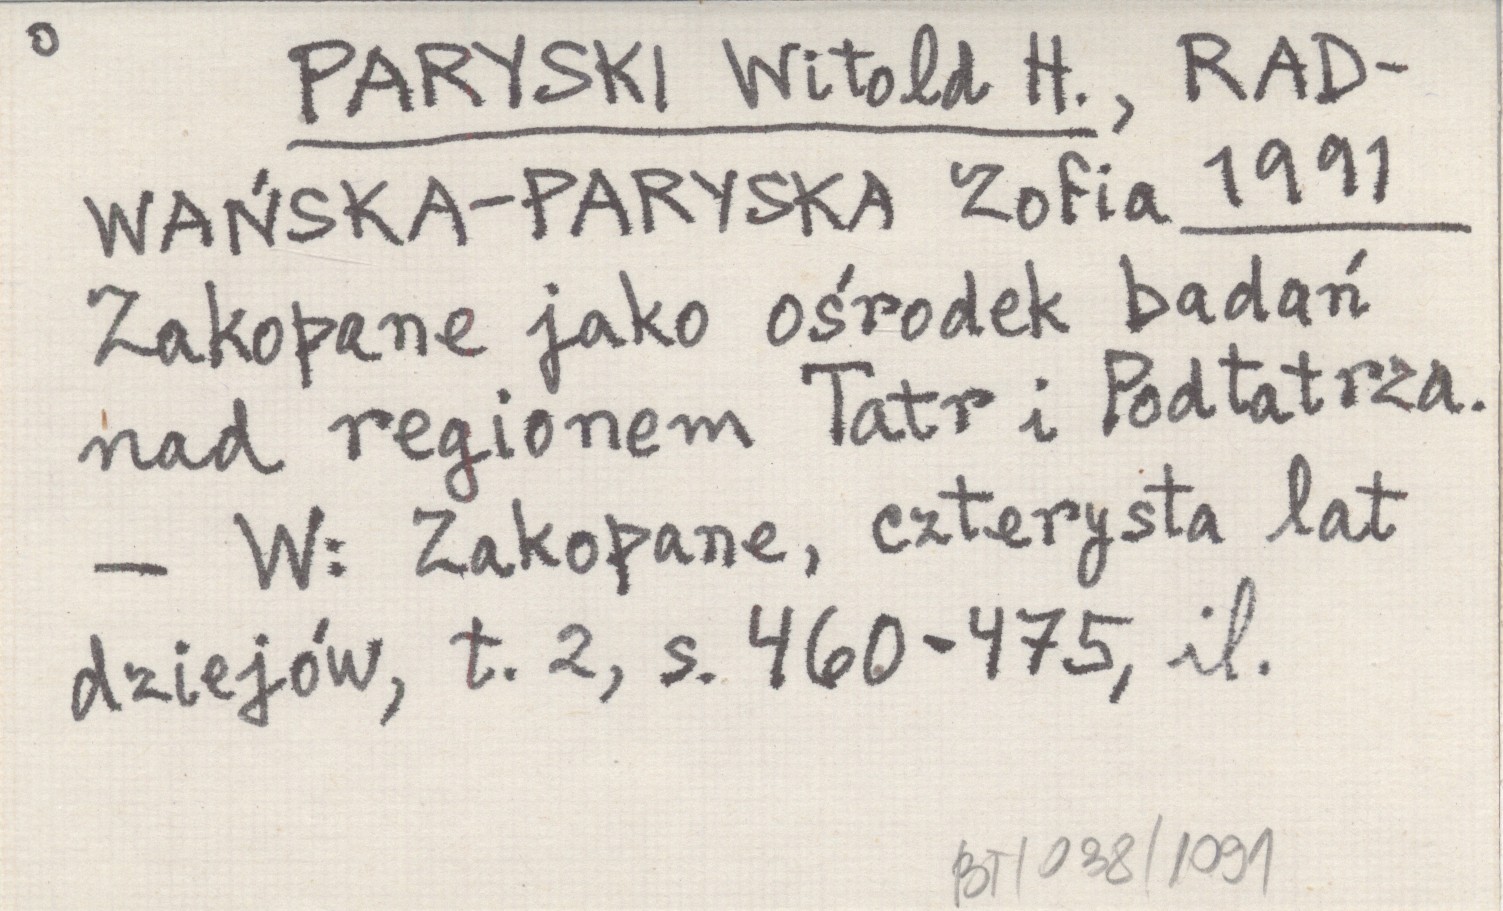 o
PARYSKI Witold H., RAD-
WAŃSKA-PARYSKA Zofia 1991
Zakopane jako ośrodek badań
nad regionem Tatr i Podtatrza.
— W: Zakopane, czterysta lat
dziejów, t. 2, s. 460-475, il.
BT/038/1091